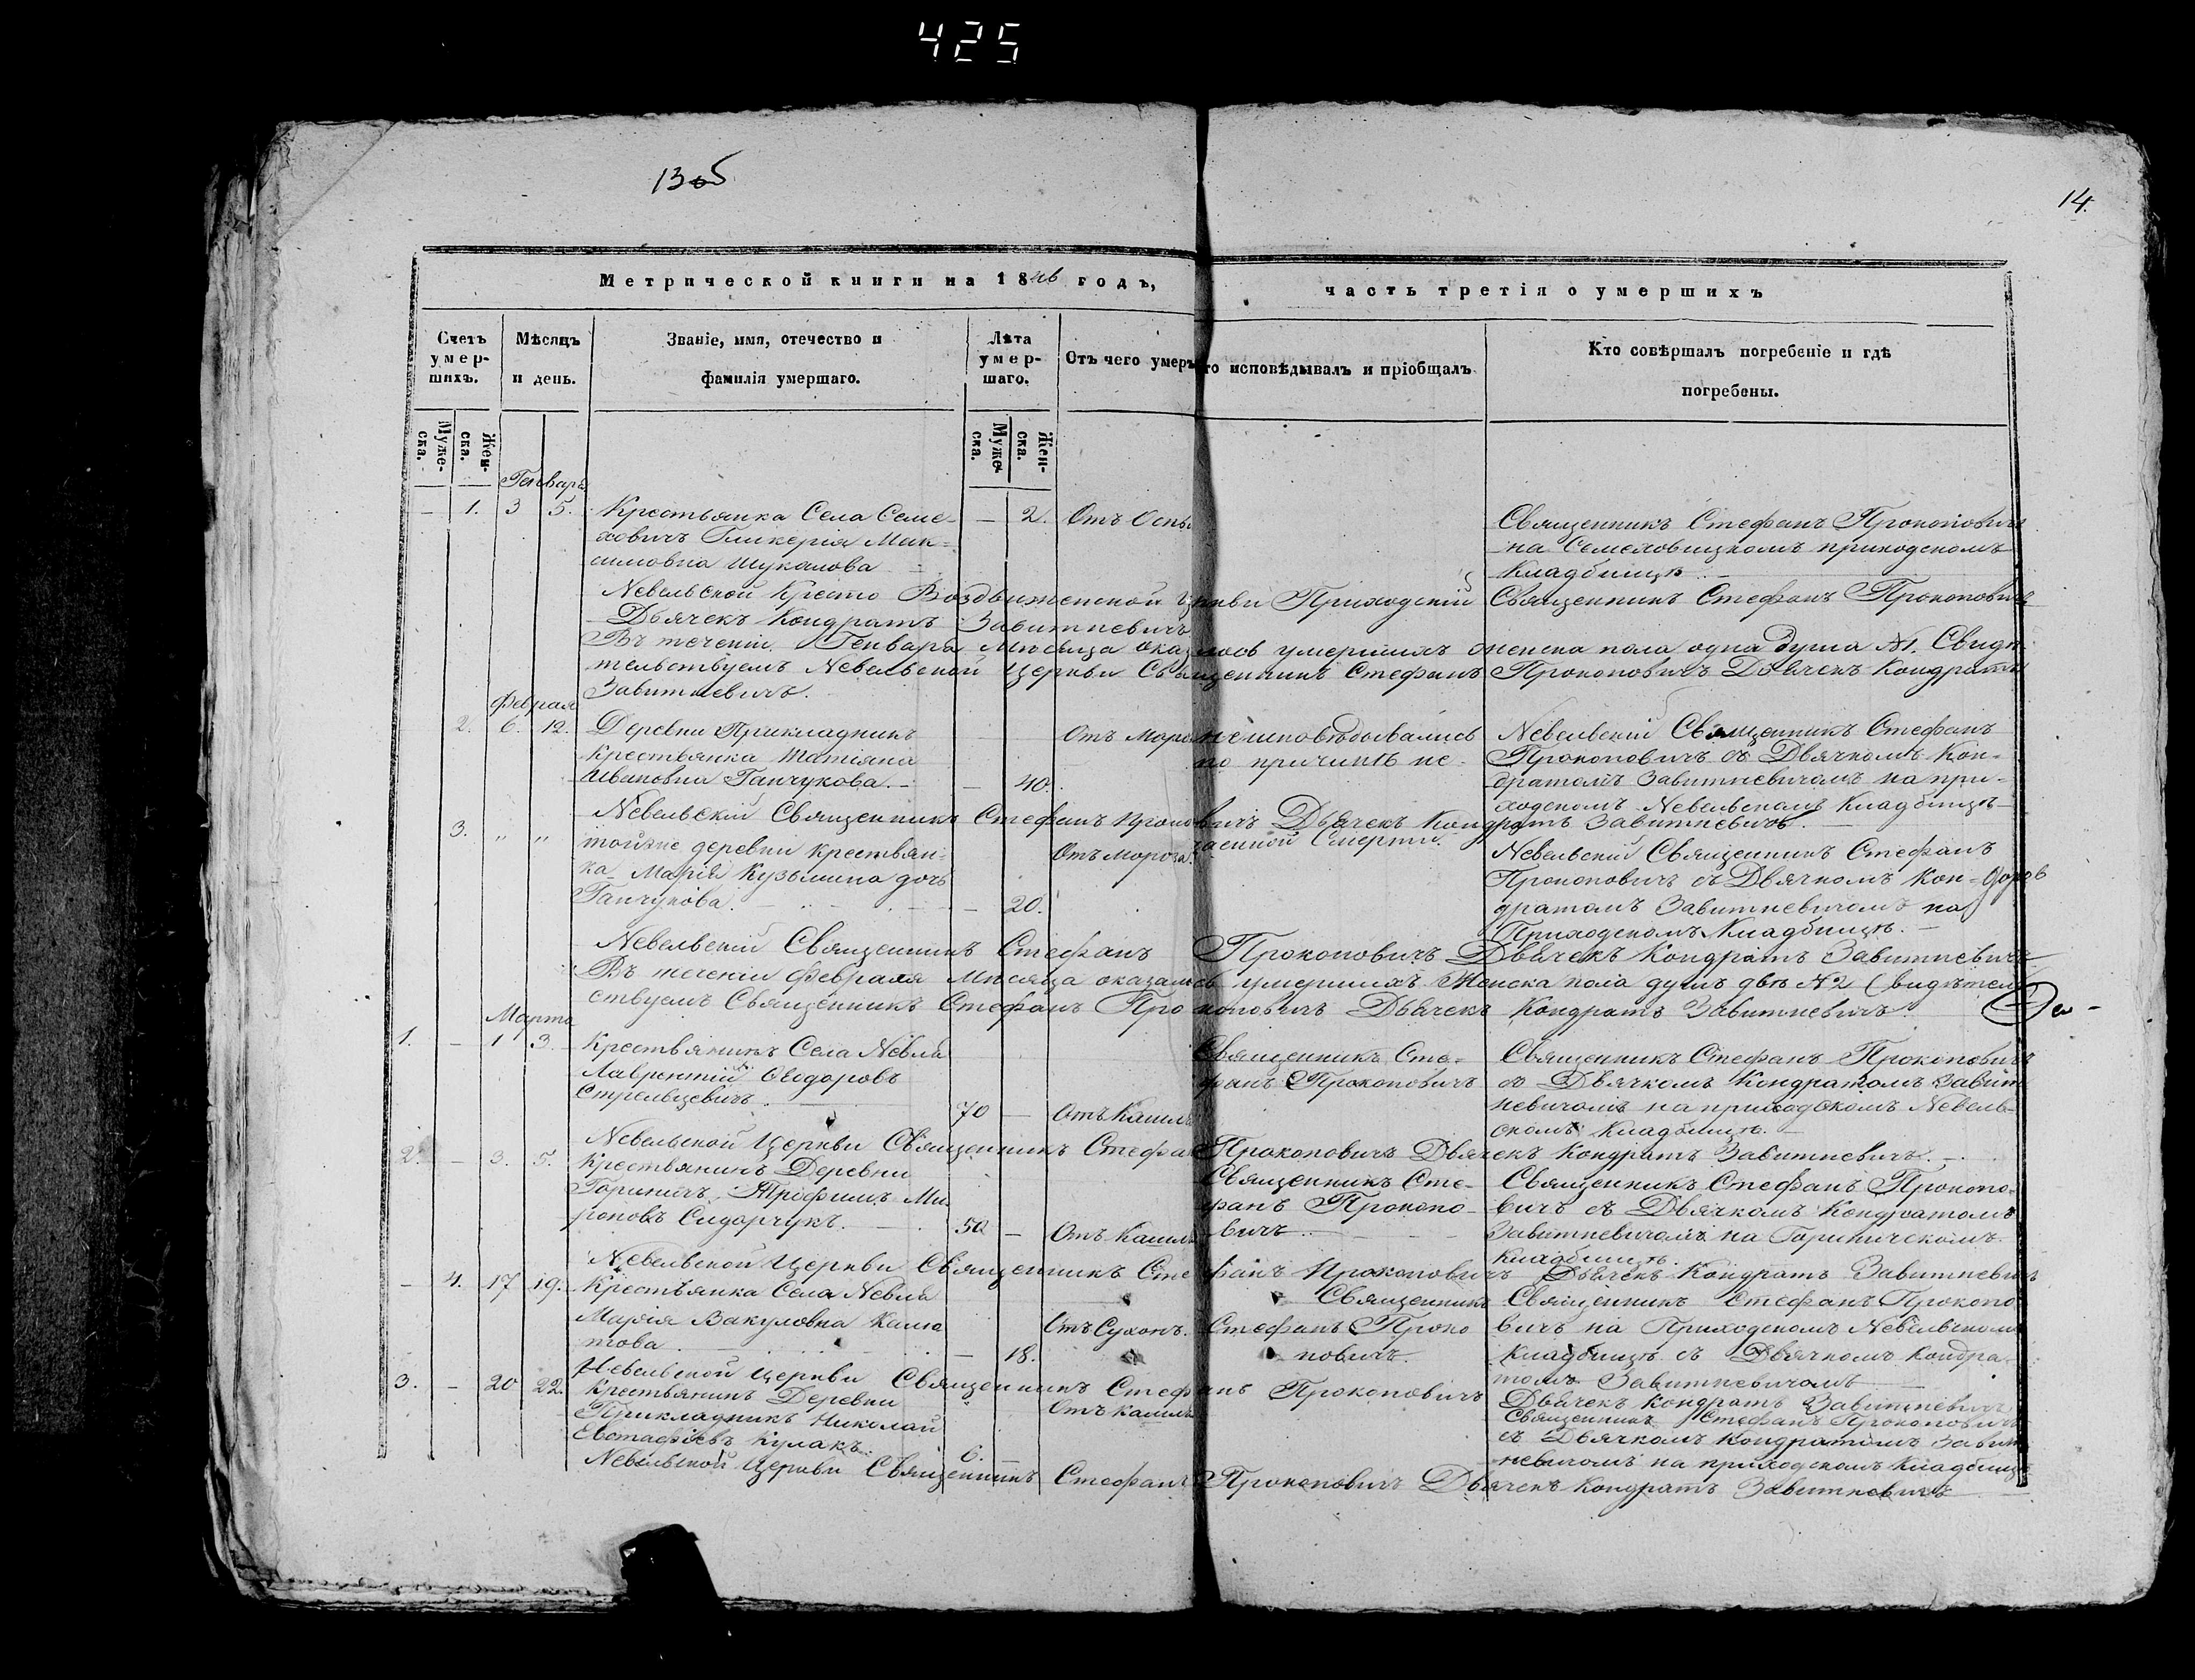 425
14.
Метрической книги на 18 годъ,
часть третія о умершихъ
Счетъ умер-шихъ.
Мѣсяцъ и день.
Званіе, имя, отечество и фамилія умершаго.
Лѣта умер-шаго.
Отъ чего умеръ
то исповѣдывалъ и пріобщалъ
Кто совѣршалъ погребеніе и гдѣ погребены.
Муже-ска.
Жен-ска.
Муже-ска.
Жен-ска.
Генварь
— 1. 3 5. Крестьянка Села Семе- — 2. Отъ Оспы Священникъ Стефанъ Прокоповичъ
ховичъ Гликерія Мак- на Семеховицкомъ приходскомъ
симовна Шукалова Кладбищѣ.
Невельской Кресто Воздвиженской Церкви Приходскій Священникъ Стефанъ Прокоповичъ
Дьячекъ Кондратъ Завитневичъ
Въ теченіи Генваря Мѣсяца оказалось умершихъ женска пола одна душа №1. Свидѣ-
тельствуемъ Невельской Церкви Священникъ Стефанъ Прокоповичъ Дьячекъ Кондратъ
Завитневичъ.
Февраля
2. 6. 12. Деревни Прикладникъ Отъ Мороза неисповѣдовались Невельскій Священникъ Стефанъ
Крестьянка Татіяна по причинѣ не- Прокоповичъ съ Дьячкомъ Кон-
Ивановна Ганчукова. — 40. дратомъ Завитневичомъ на при-
ходскомъ Невельскомъ Кладбищѣ
Невельскій Священникъ Стефанъ Прокоповичъ Дьячекъ Кондратъ Завитневичъ.
3. " " тойже деревни Крестьян- Отъ Мороза. чаенной Смерти. Невельскій Священникъ Стефанъ
ка Марія Кузьмина дочь Прокоповичъ съ Дьячкомъ Кон-
Ганчукова. — 20. дратомъ Завитневичомъ на
Приходскомъ Кладбищѣ.
Невельскій Священникъ Стефанъ Прокоповичъ Дьячекъ Кондратъ Завитневичъ
Въ теченіи Февраля Мѣсяца оказалось умершихъ Женска пола душъ двѣ №2 Свидѣтель
ствуемъ Священникъ Стефанъ Прокоповичъ Дьячекъ Кондратъ Завитневичъ.
Марта
1. — 1 3. Крестьянинъ Села Невля Священникъ Сте- Священникъ Стефанъ Прокоповичъ
Лаврентій Ѳеодоровъ фанъ Прокоповичъ съ Дьячкомъ Кондратомъ Завит
Стрельцевичъ. 70 — Отъ Кашля невичомъ на приходскомъ Невель-
скомъ Кладбищѣ.
Невельской Церкви Священникъ Стефанъ Прокоповичъ Дьячекъ Кондратъ Завитневичъ.
2. — 3. 5. Крестьянинъ Деревни Священникъ Сте- Священникъ Стефанъ Прокопо-
Гориничъ Трофимъ Ми фанъ Прокопо- вичъ съ Дьячкомъ Кондратомъ
роновъ Сидорчукъ. 50 — Отъ Кашля вичъ. Завитневичомъ на Гориническомъ
Кладбищѣ.
Невельской Церкви Священникъ Стефанъ Прокоповичъ Дьячекъ Кондратъ Завитневичъ
— 4. 17 19. Крестьянка Села Невля Священникъ Священникъ Стефанъ Прокопо
Марія Вакуловна Отъ Сухотъ. Стефанъ Проко вичъ на Приходскомъ Невельскомъ
това. — 18. повичъ. Кладбищѣ съ Дьячкомъ Кондра-
томъ Завитневичомъ
Невельской Церкви Священникъ Стефанъ Прокоповичъ Дьячекъ Кондратъ Завитневичъ
3. — 20 22. Крестьянинъ Деревни Отъ кашля Священникъ Стефанъ Прокоповичъ
Прикладникъ Николай съ Дьячкомъ Кондратомъ Завит
Евстафіевъ Кулакъ. 6. невичомъ на приходскомъ Кладбищѣ
Невельской Церкви Священникъ Стефанъ Прокоповичъ Дьячекъ Кондратъ Завитневичъ